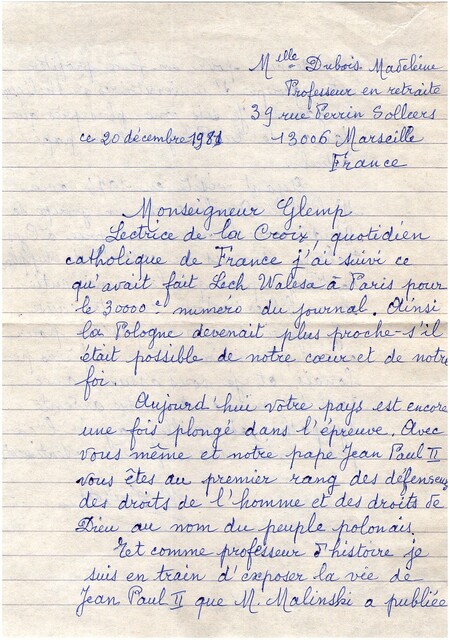 Mlle Dubois Madeleine
Professeur en retraite
39 rue Perrin Solliers
ce 20 décembre 1981 13006 Marseille
France
Monseigneur Glemp
Lectrice de la Croix, quotidien
catholique de France j'ai suivi ce
qu'avait fait Lech Walesa à Paris pour
le 30000e numéro du journal. Ainsi
la Pologne devenait plus proche - s'il
était possible de notre cœur et de notre
foi.
Aujourd'hui votre pays est encore
une fois plongé dans l'épreuve. Avec
vous même et notre pape Jean Paul II
vous êtes au premier rang des défenseurs
des droits de l'homme et des droits de
Dieu au nom du peuple polonais.
Et comme professeur d'histoire je
suis en train d'exposer la vie de
Jean Paul II que M. Malinski a publiée